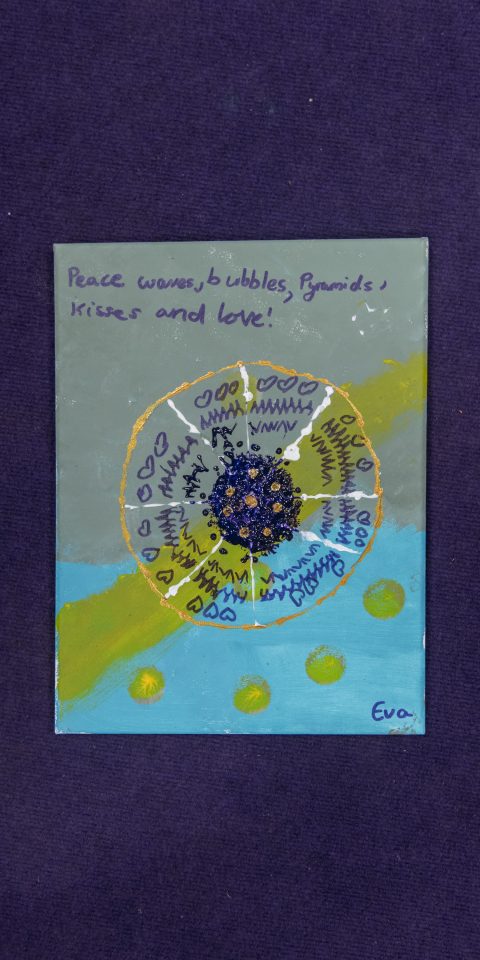 Peace waves, bubbles, Pyramids,
Kisses and love!
Eva